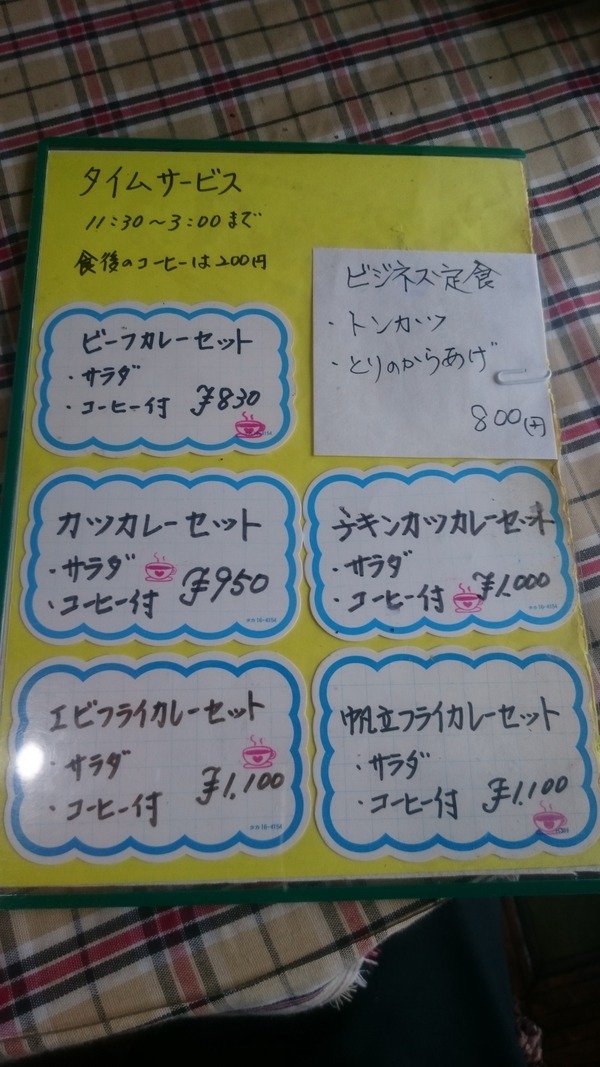 タイムサービス
11:30～3:00まで
食後のコーヒーは200円
ビジネス定食
・トンカツ
・とりのからあげ
800円
ビーフカレーセット
・サラダ
・コーヒー付 ¥830
カツカレーセット
・サラダ
・コーヒー付 ¥950
チキンカツカレーセット
・サラダ
・コーヒー付 ¥1.000
エビフライカレーセット
・サラダ
・コーヒー付 ¥1.100
帆立フライカレーセット
・サラダ
・コーヒー付 ¥1.100